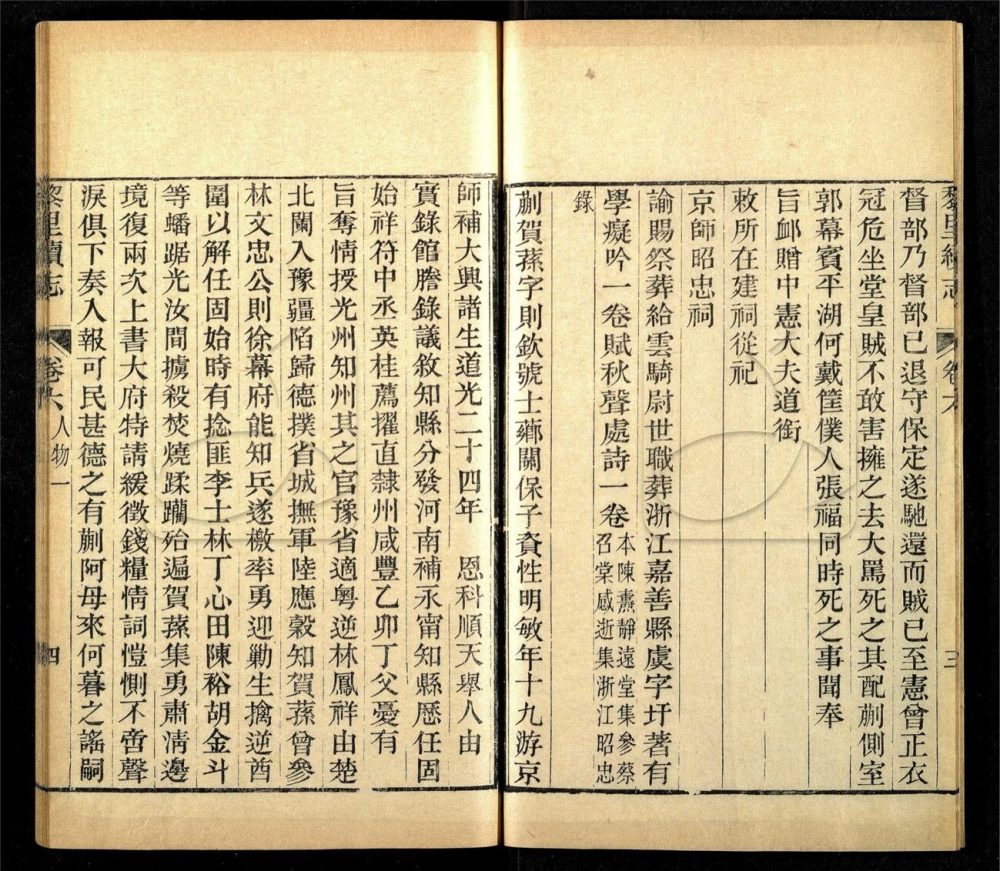 黎里續志 卷六 三
督部乃督部已退守保定遂馳還而賊已至憲曾正衣
冠危坐堂皇賊不敢害擁之去大罵死之其配蒯側室
郭幕賓平湖何戴筐僕人張福同時死之事聞奉
旨卹贈中憲大夫道銜
敕所在建祠從祀
京師昭忠祠
諭賜祭葬給雲騎尉世職葬浙江嘉善縣虞字圩著有
學癡吟一卷賦秋聲處詩一卷本陳燾靜遠堂集參蔡
召棠感逝集浙江昭忠
錄
蒯賀蓀字則欽號士薌關保子資性明敏年十九游京
師補大興諸生道光二十四年 恩科順天舉人由
實錄館謄錄議敘知縣分發河南補永甯知縣歷任固
始祥符中丞英桂薦擢直隸州咸豐乙卯丁父憂有
旨奪情授光州知州其之官豫省適粵逆林鳳祥由楚
北闌入豫疆陷歸德撲省城撫軍陸應穀知賀蓀曾參
林文忠公則徐幕府能知兵遂檄率勇迎勦生擒逆酋
圍以解任固始時有捻匪李士林丁心田陳裕胡金斗
等蟠踞光汝間擄殺焚燒蹂躪殆遍賀蓀集勇肅清邊
境復兩次上書大府特請緩徵錢糧情詞愷惻不啻聲
淚俱下奏入報可民甚德之有蒯阿母來何暮之謠嗣
黎里續志 卷六 人物一 四